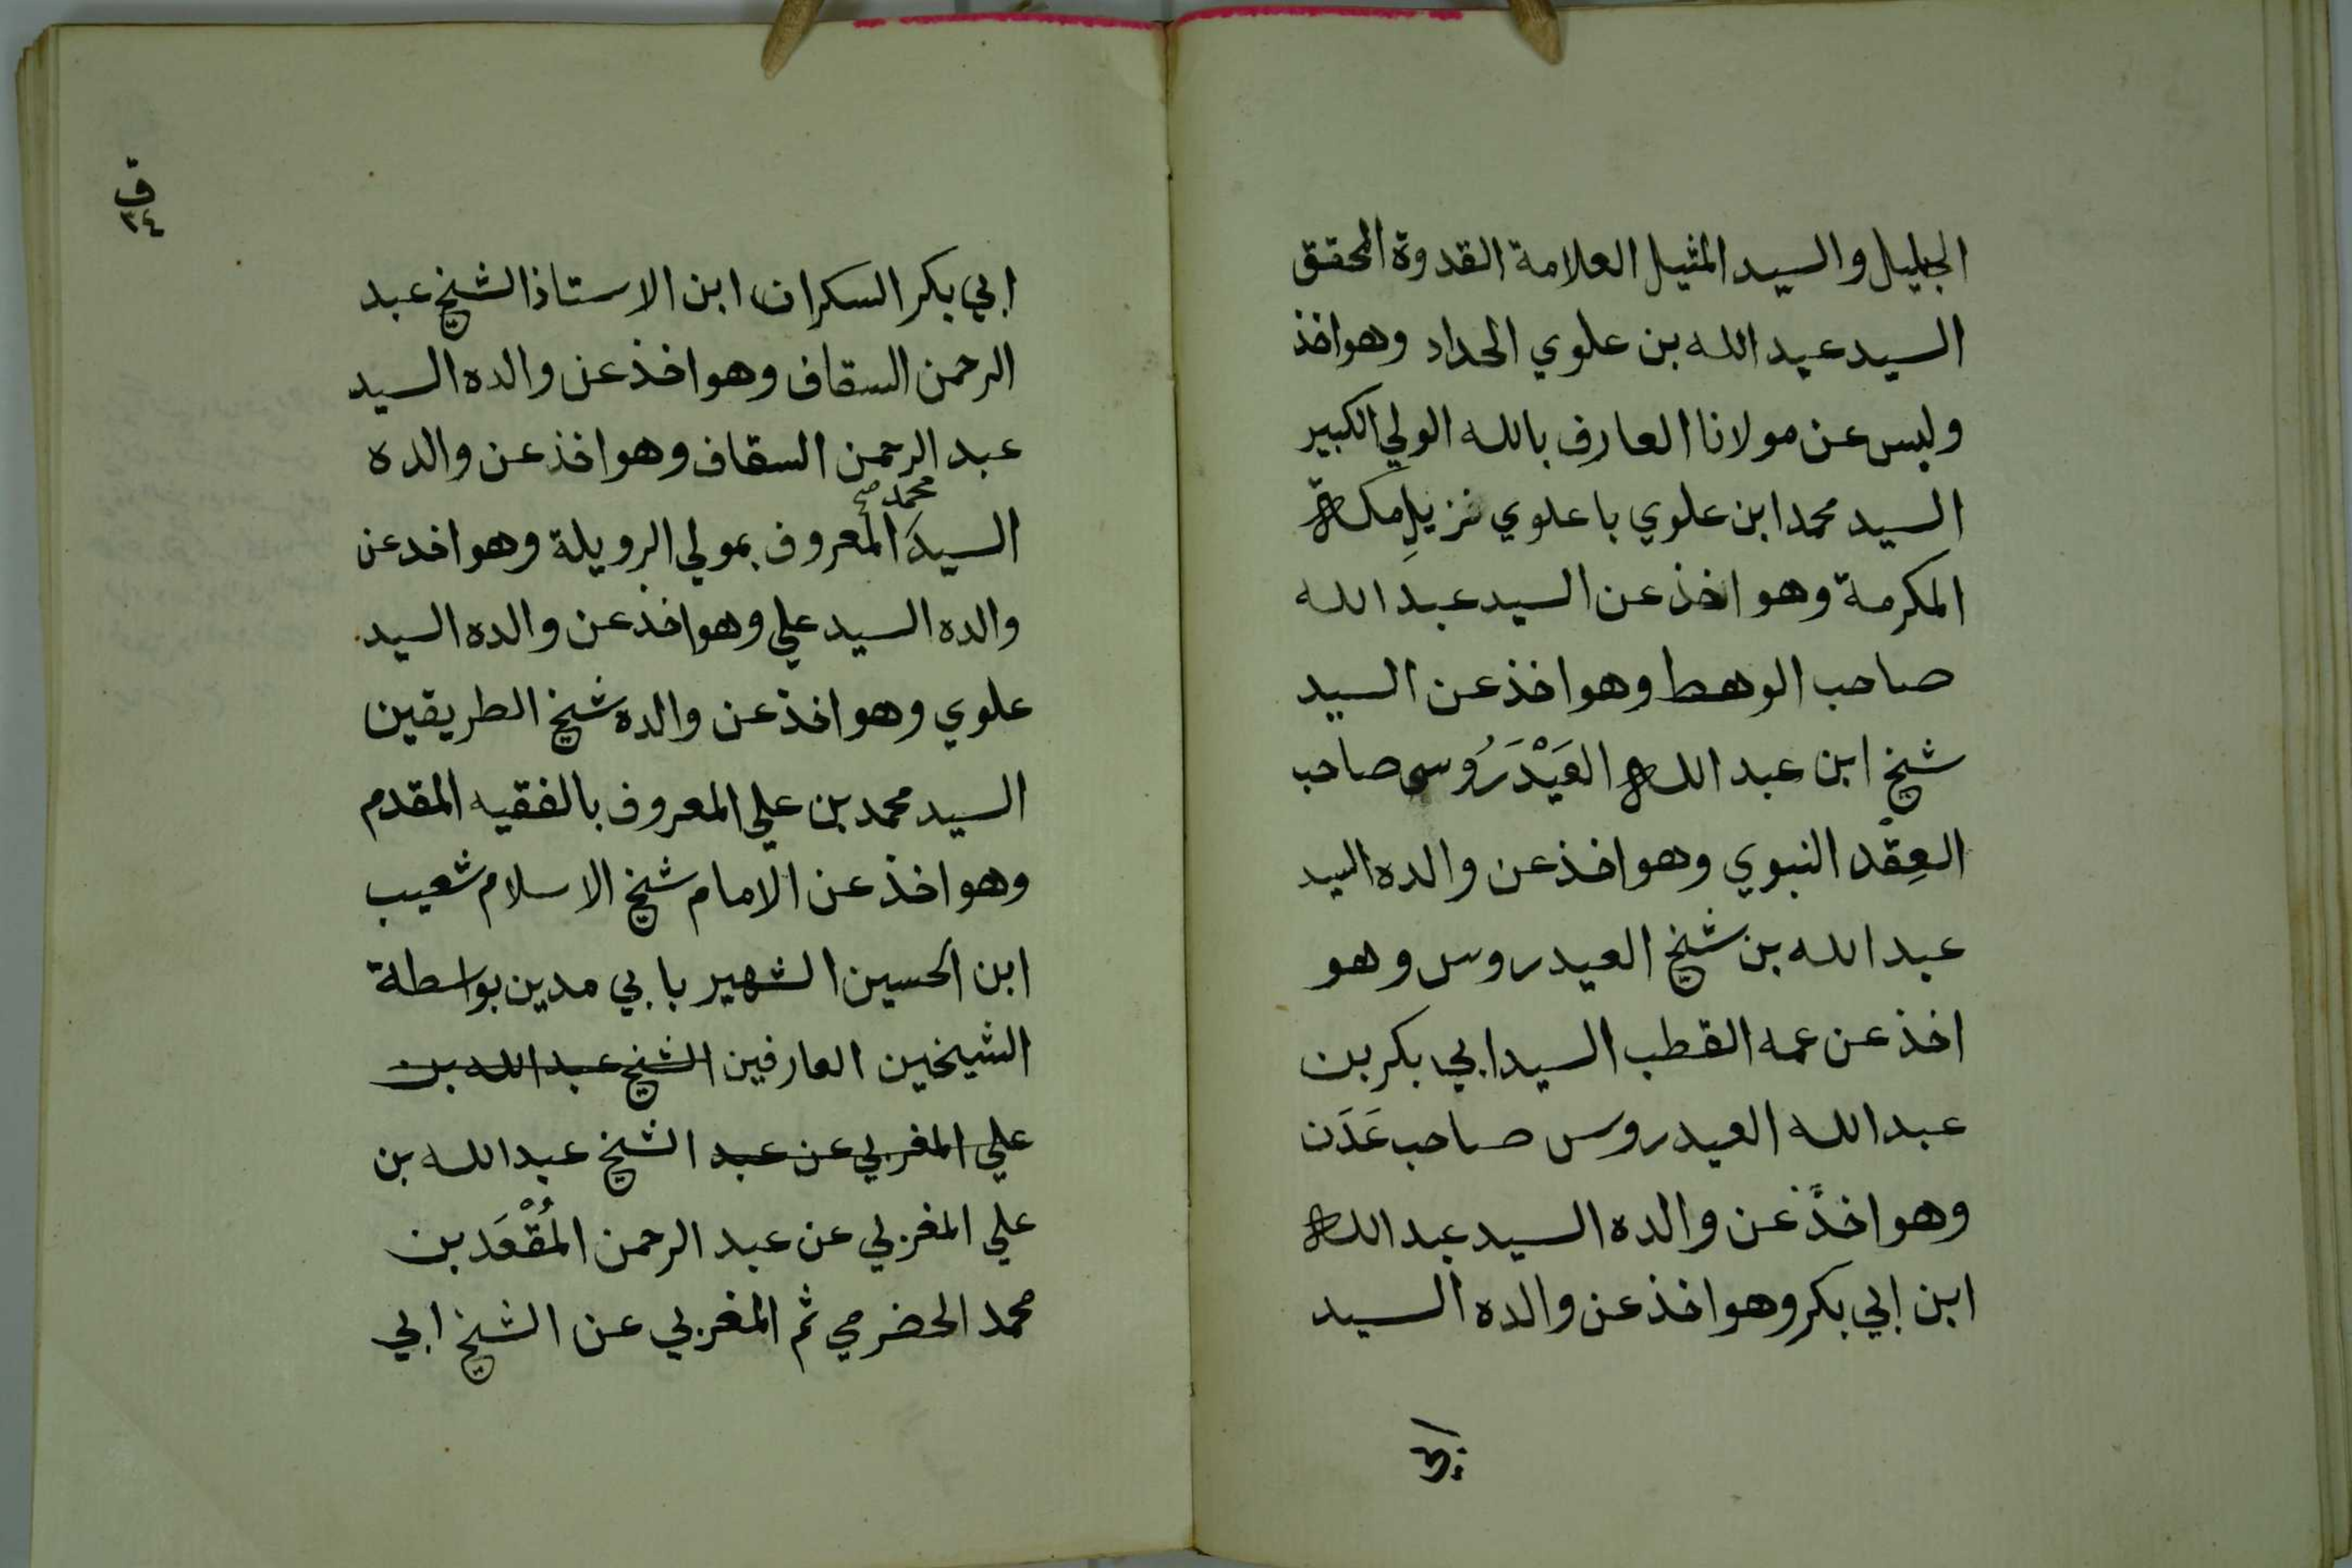 الجليل والسيد المثيل العلامة القدوة المحقق
السيد عبد الله بن علوي الحداد وهو اخذ
ولبس عن مولانا العارف بالله الولي الكبير
السيد محمد ابن علوي باعلوي نزيلِ مكة
المكرمة وهو اخذ عن السيد عبد الله
صاحب الوهط وهو اخذ عن السيد
شيخ ابن عبد الله العَيْدَرُوسى صاحب
العِقْد النبوي وهو اخذ عن والده السيد
عبد الله بن شيخ العيدروس وهو
اخذ عن عمه القطب السيد ابي بكر بن
عبد الله العيدروس صاحب عَدَن
وهو اخذ عن والده السيد عبد الله
ابن ابي بكر وهو اخذ عن والده السيد
ابي
ق
٣٤
ابي بكر السكران ابن الاستاذ الشيخ عبد
الرحمن السقاف وهو اخذ عن والده السيد
عبد الرحمن السقاف وهو اخذ عن والده
محمد صح
السيد المعروف بمولي الرويلة وهو اخد عن
والده السيد علي وهو اخذ عن والده السيد
علوي وهو اخذ عن والده شيخ الطريقين
السيد محمد بن علي المعروف بالفقيه المقدم
وهو اخذ عن الامام شيخ الاسلام شعيب
ابن الحسين الشهير بابي مدين بواسطة
الشيخين العارفين الشيخ عبد الله بن
علي المغربي عن عبد الشيخ عبد الله بن
علي المغربي عن عبد الرحمن المُقْعَد بن
محمد الحضرمي ثم المغربي عن الشيخ ابي